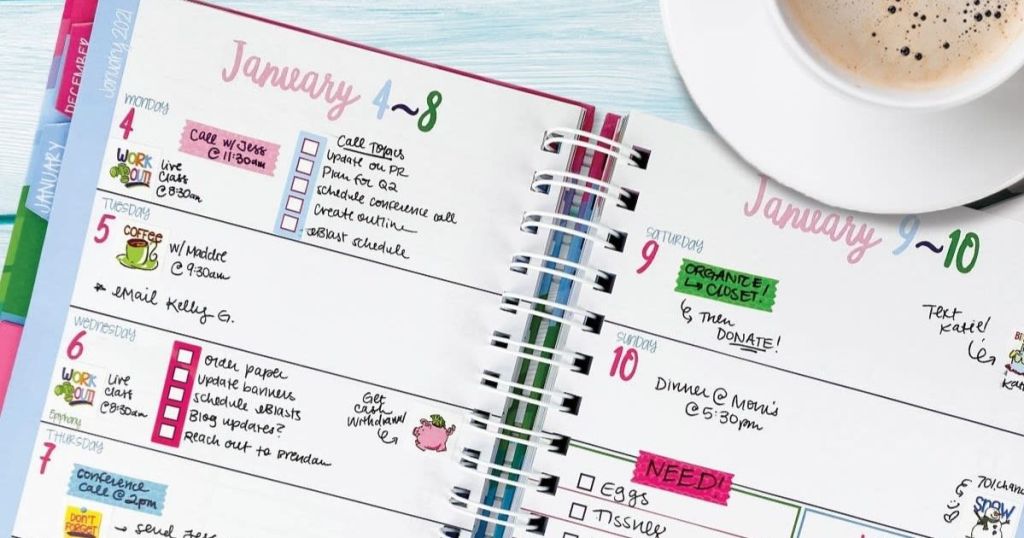 DECEMBER
January 2021
JANUARY
January 4~8
MONDAY
4
WORK
OUT
Live
class
@ 8:30am
Call w/ Jess
@ 11:30am
Call Topics
Update on PR
Plan for Q2
schedule conference call
Create outline
eBlast schedule
TUESDAY
5
COFFEE
w/ Maddie
@ 9:30am
* eMail Kelly G.
WEDNESDAY
6
WORK
OUT
Live
class
@ 8:30am
Epiphany
order paper
update banners
schedule eBlasts
Blog updates?
Reach out to Brendan
Get
cash
withdrawal
THURSDAY
7
conference
call @ 2pm
DON'T
FORGET
→ send
January 9~10
SATURDAY
9
ORGANIZE!
↳ CLOSET!
↳ Then
DONATE!
Text
Katie!
SUNDAY
10
Dinner @ Mom's
@ 5:30pm
NEED!
EGGS
TISSUES
70%
SNOW